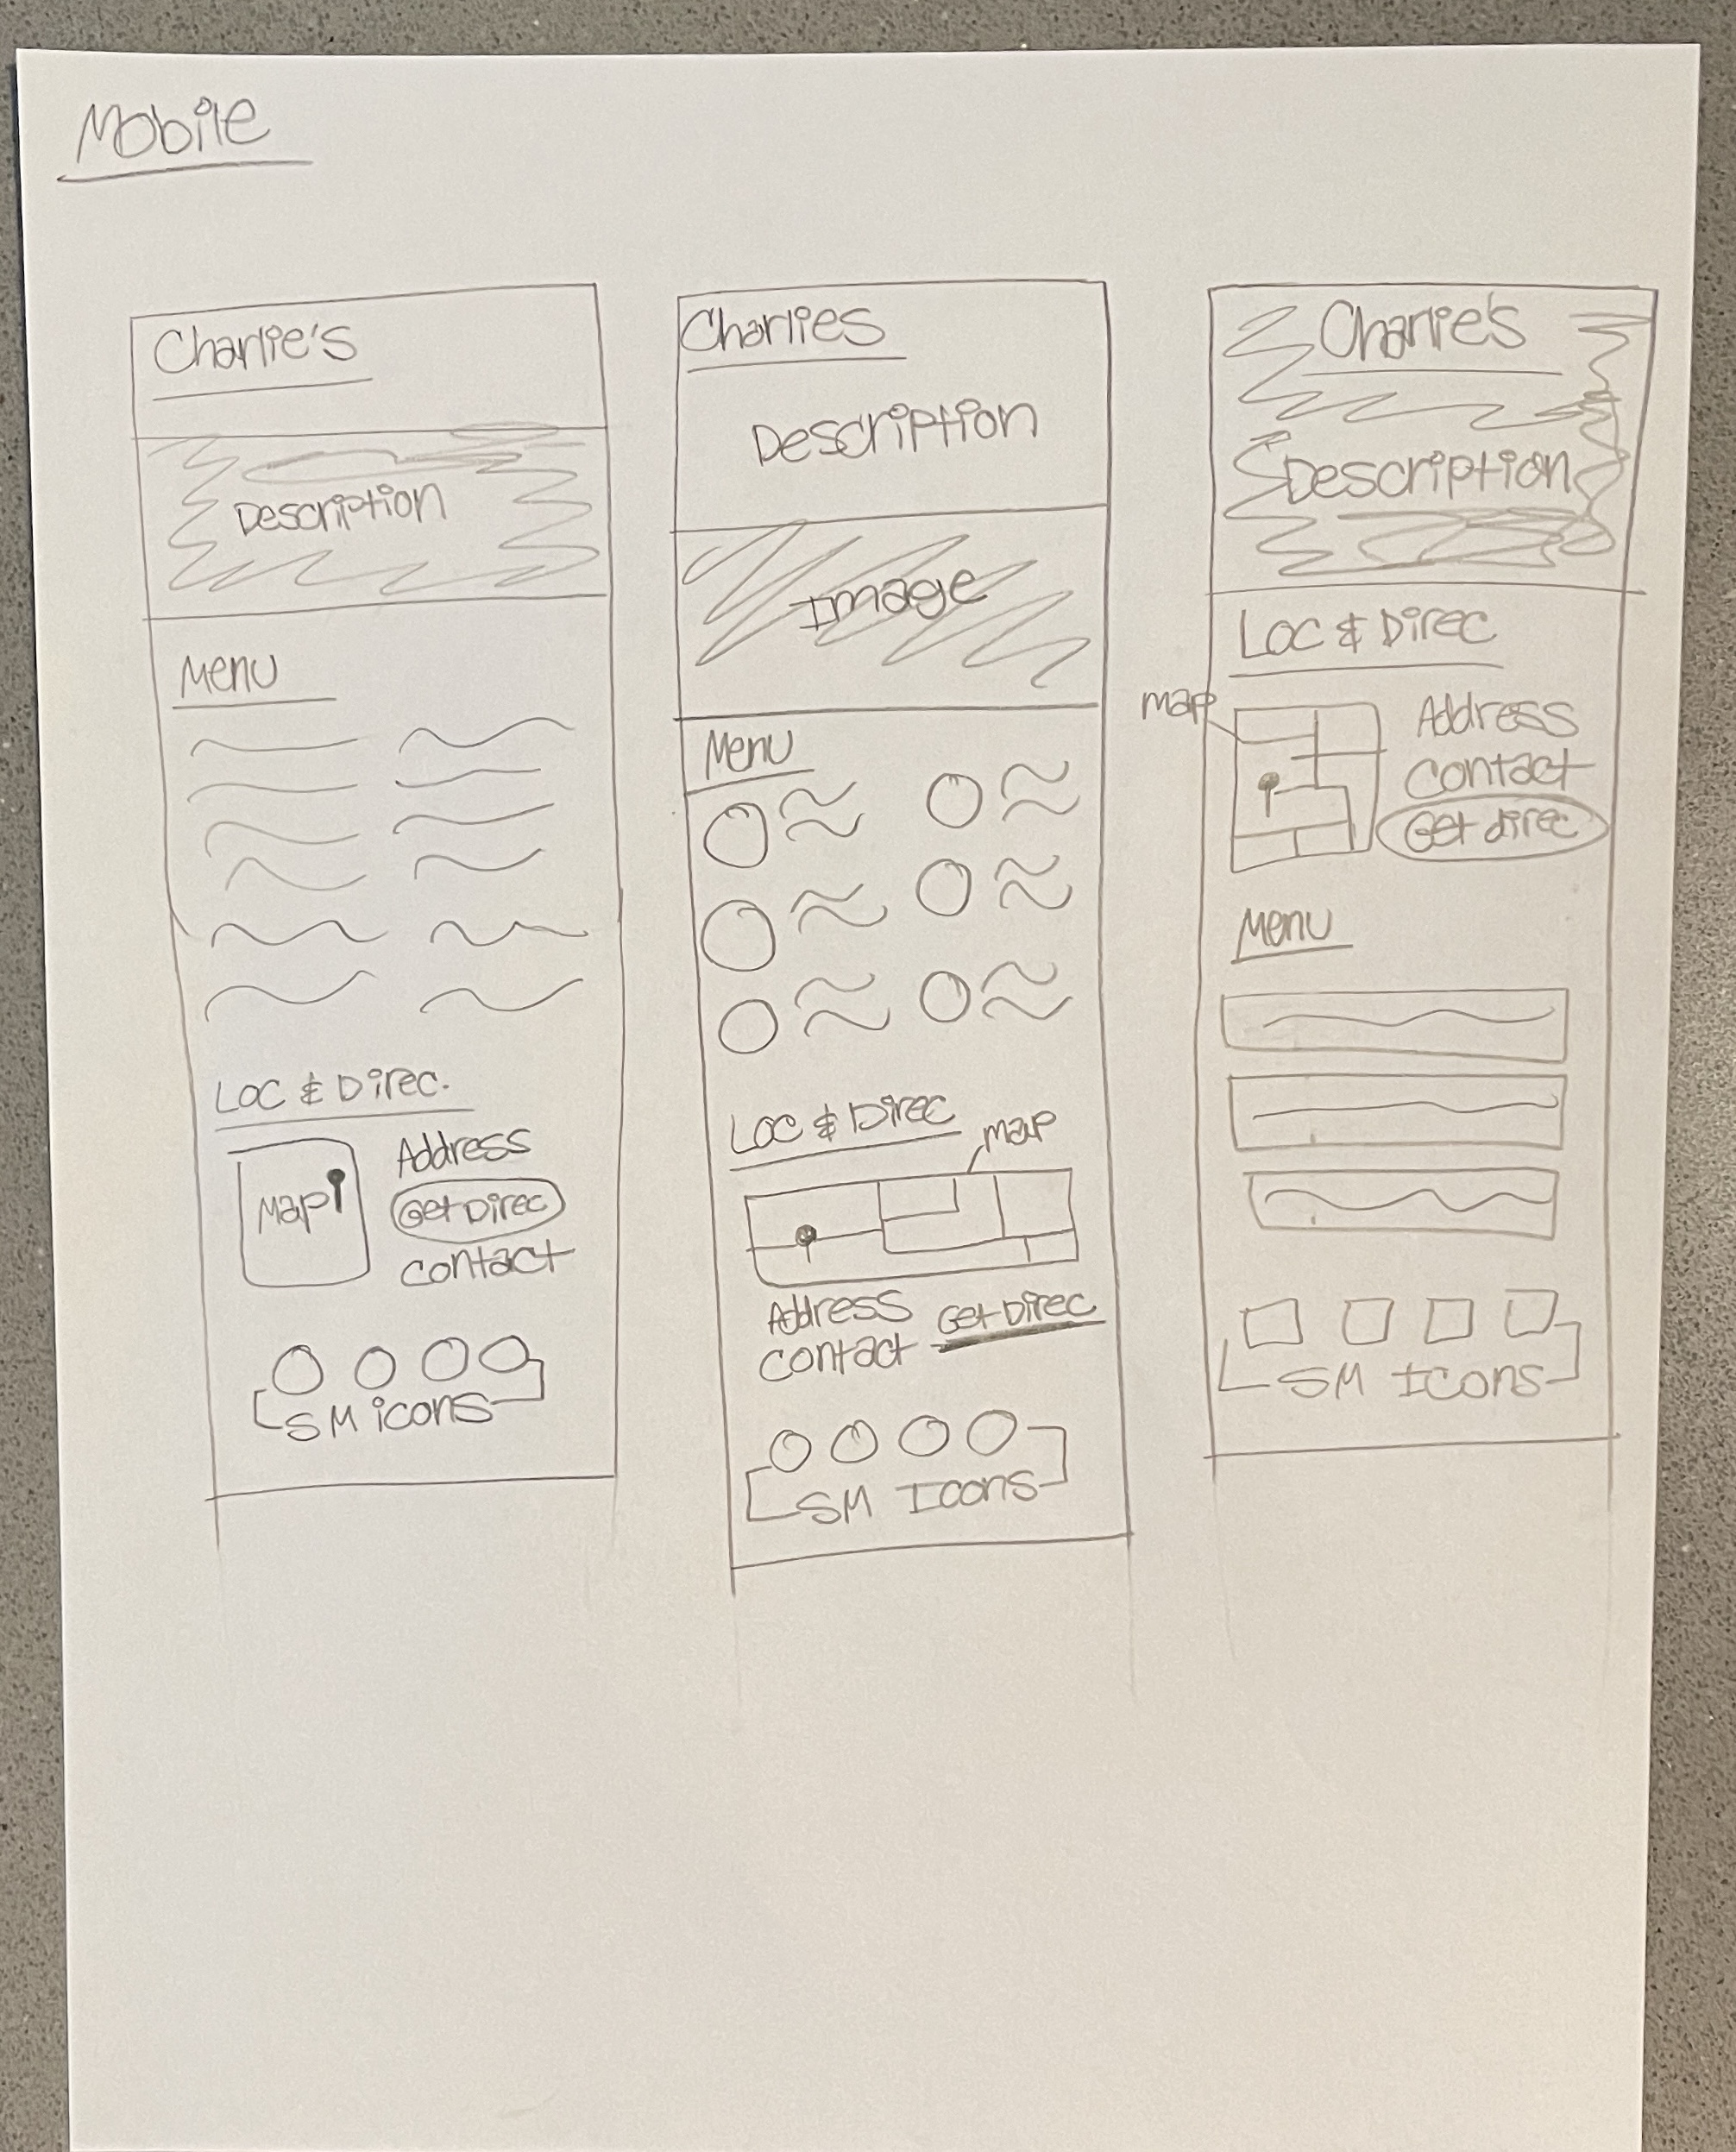 Mobile
Charlie's
Description
Menu
Loc & Direc.
Map
Address
Get Direc
contact
SM icons
Charlies
Description
Image
Menu
Loc & Direc
map
Address
Get Direc
contact
SM Icons
Charlie's
Description
Loc & Direc
map
Address
contact
Get direc
Menu
SM Icons